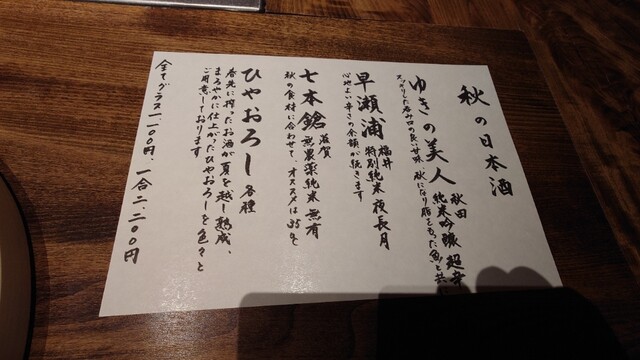 秋の日本酒
ゆきの美人 秋田 純米吟醸 超辛
スッキリした呑み口の良い甘味、秋になり脂をもった魚と共
早瀬浦 福井 特別純米 夜長月
心地よい辛さの余韻が続きます
七本鎗 滋賀 無農薬純米 無有
秋の食材に合わせて、オススメは55℃
ひやおろし 各種
春先に搾ったお酒が夏を越し熟成、
まろやかに仕上がったひやおろしを色々と
ご用意しております
全てグラス一、一〇〇円、一合二、二〇〇円